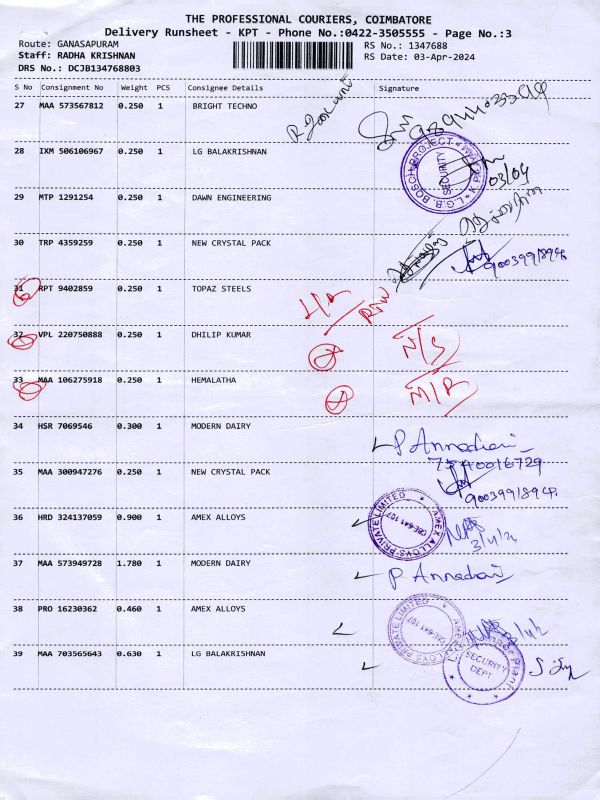 THE PROFESSIONAL COURIERS, COIMBATORE
Delivery Runsheet - KPT - Phone No.:0422-3505555 - Page No.:3
Route: GANASAPURAM RS No.: 1347688
Staff: RADHA KRISHNAN RS Date: 03-Apr-2024
DRS No.: DCJB134768803
S No Consignment No Weight PCS Consignee Details Signature
27 MAA 573567812 0.250 1 BRIGHT TECHNO
28 IXM 506106967 0.250 1 LG BALAKRISHNAN
L.G.B. BOSCH PROJECT
SECURITY
03/04
29 MTP 1291254 0.250 1 DAWN ENGINEERING
30 TRP 4359259 0.250 1 NEW CRYSTAL PACK
31 RPT 9402859 0.250 1 TOPAZ STEELS
32 VPL 220750888 0.250 1 DHILIP KUMAR N/S
33 MAA 106275918 0.250 1 HEMALATHA M/R
34 HSR 7069546 0.300 1 MODERN DAIRY P Annadurai
7540016729
35 MAA 300947276 0.250 1 NEW CRYSTAL PACK
36 HRD 324137059 0.900 1 AMEX ALLOYS
AMEX ALLOYS PRIVATE LIMITED
CBE-641 107
37 MAA 573949728 1.780 1 MODERN DAIRY P Annadurai
38 PRO 16230362 0.460 1 AMEX ALLOYS
AMEX ALLOYS PRIVATE LIMITED
CBE-641 107
39 MAA 703565643 0.630 1 LG BALAKRISHNAN
SECURITY
DEPT